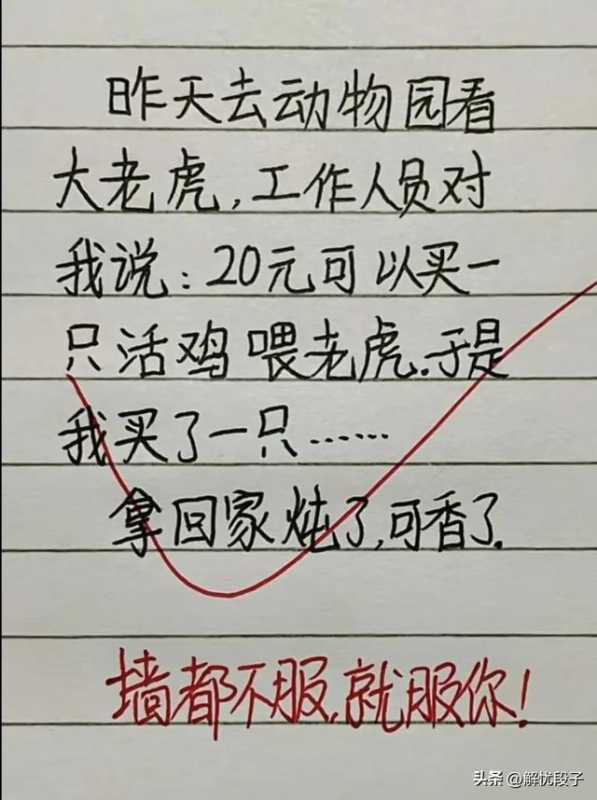 昨天去动物园看
大老虎,工作人员对
我说:20元可以买一
只活鸡喂老虎.于是
我买了一只……
拿回家炖了,可香了.
墙都不服,就服你!
头条 @解忧段子